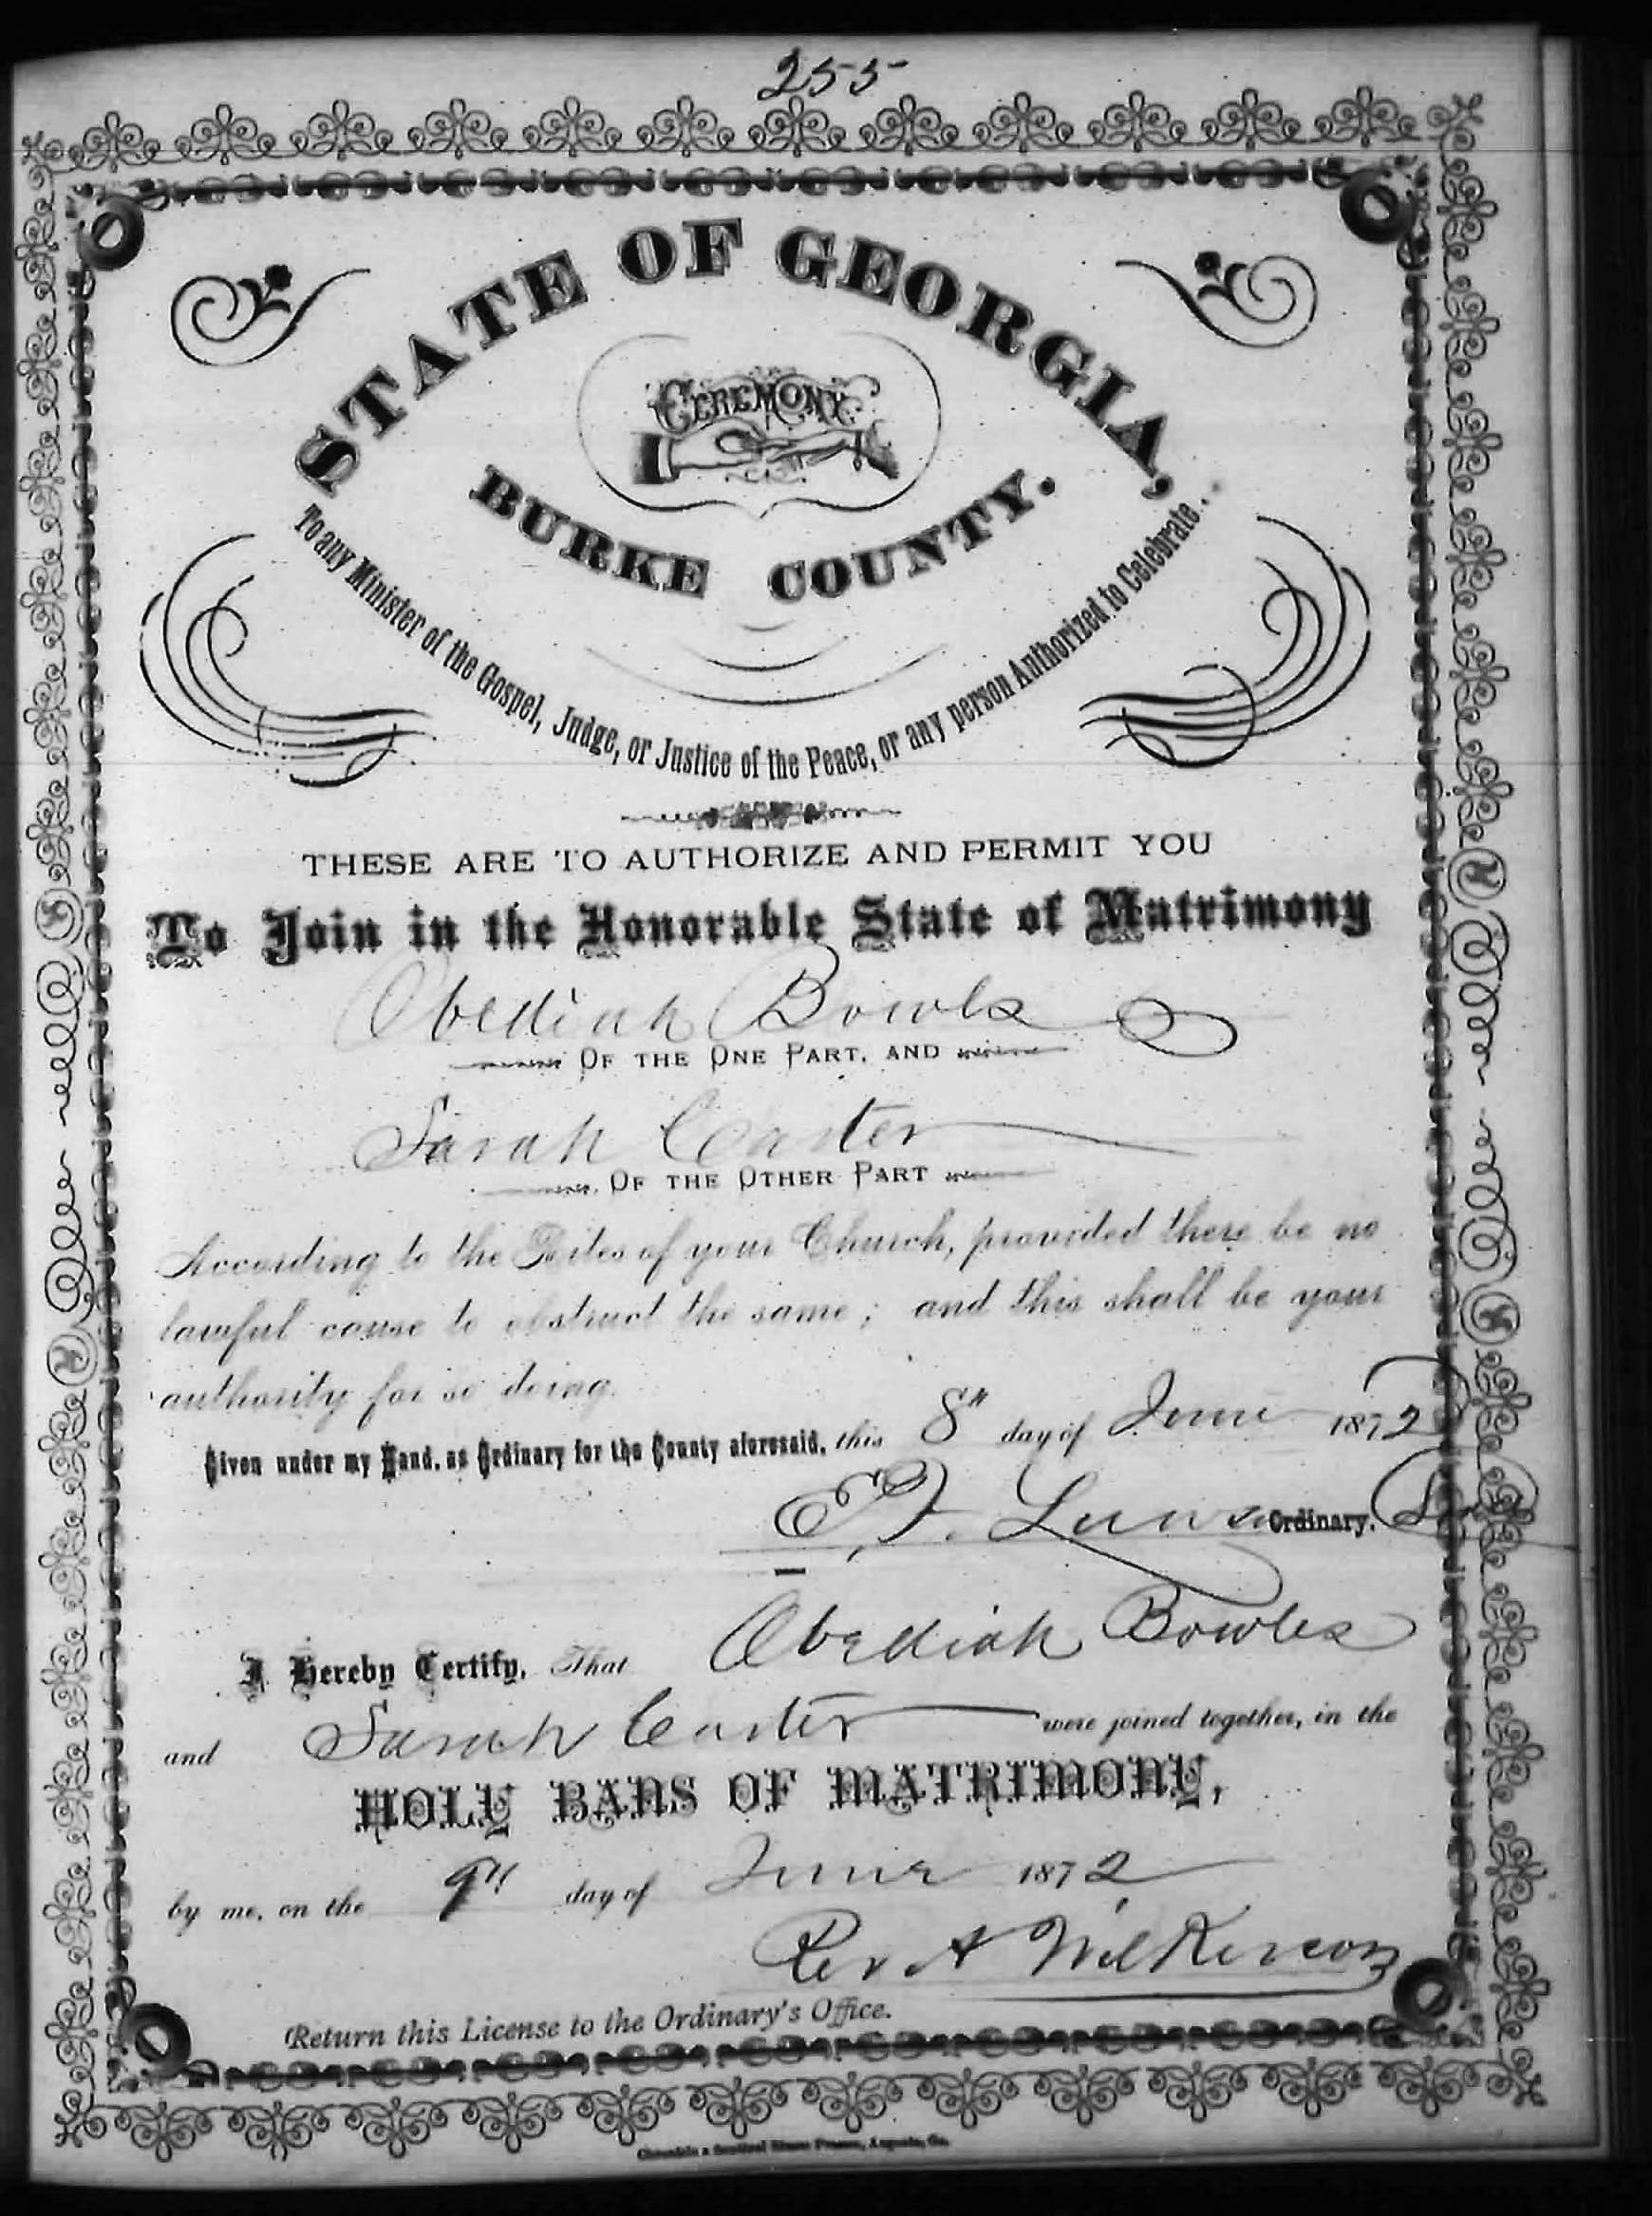 255
STATE OF GEORGIA,
CEREMONY
BURKE COUNTY.
To any Minister of the Gospel, Judge, or Justice of the Peace, or any person Authorized to Celebrate..
THESE ARE TO AUTHORIZE AND PERMIT YOU
To Join in the Honorable State of Matrimony
Obediah Bowls
OF THE ONE PART, AND
Sarah Carter
OF THE OTHER PART
According to the Rites of your Church, provided there be no
lawful cause to obstruct the same; and this shall be your
authority for so doing.
Given under my Hand, as Ordinary for the County aforesaid, this 8th day of June 1872
Ordinary.
I Hereby Certify, That Obediah Bowles
and Sarah Carter were joined together, in the
HOLY BANS OF MATRIMONY,
by me, on the 9th day of June 1872
Rev A Wilkerson
Return this License to the Ordinary's Office.
Chronicle & Sentinel Steam Presses, Augusta, Ga.